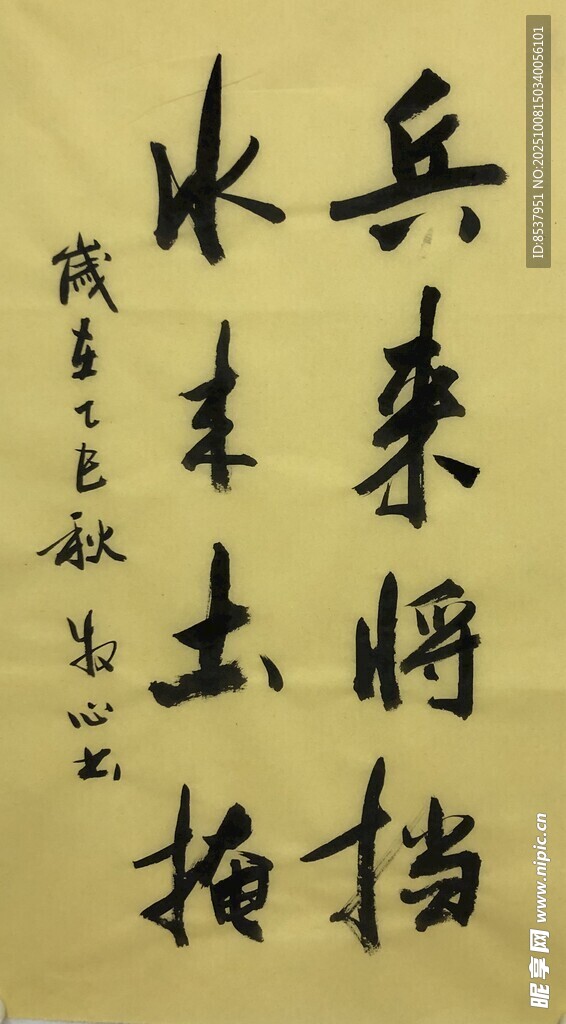 兵来将挡
水来土掩
歲在乙巳秋 牧心书
ID:8537951 NO:20251008150340056101
昵享网 www.nipic.cn